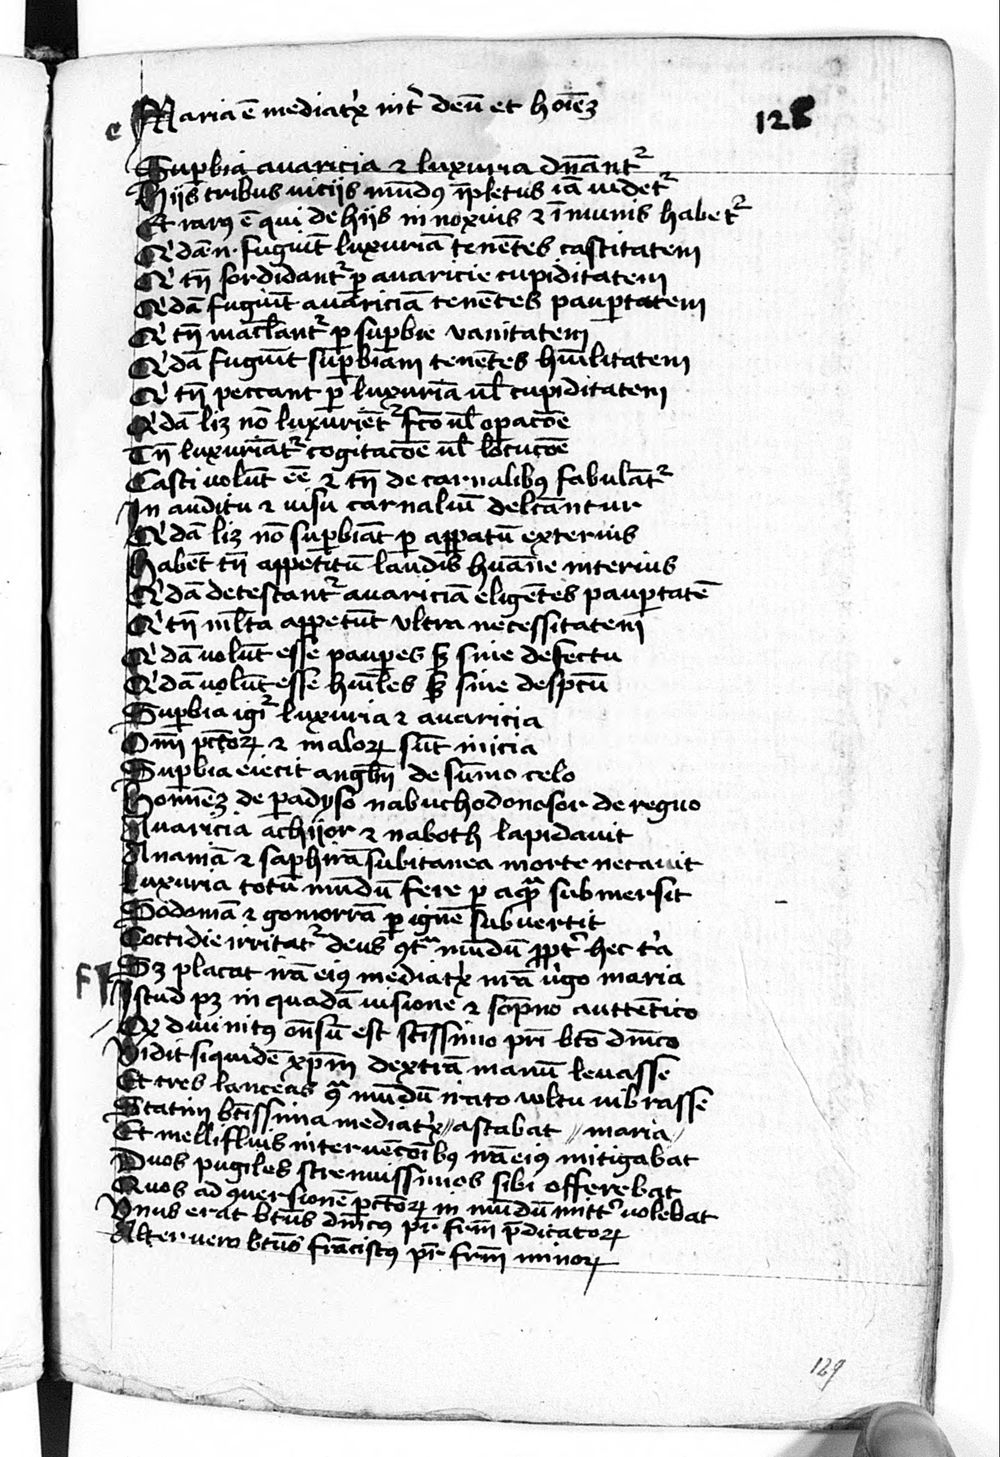 Maria ē mediatx̀ int̉ deū et hoīeꝫ
128
e
Suꝑbia auaricia ⁊ luxuria dn̄ant᷑
Hijs tribus vicijs mūdꝰ īpletus iā videt᷑
Et rarꝯ ē qui de hijs innoxius ⁊ īmunis habet᷑
Qͥdā .n. fugiūt luxuriā tenētes castitatem
Qͥ tn̄ sordidant᷑ ꝑ auaricie cupiditatem
Qͥdā fugiūt auariciā tenētes pauꝑtatem
Qͥ tn̄ mac̄lant᷑ ꝑ suꝑbie vanitatem
Qͥdā fugiūt suꝑbiam tenētes hūilitatem
Qͥ tn̄ peccant ꝑ luxuriā ul̄ cupiditatem
Qͥdā liꝫ nō luxuriēt᷑ fc̄o ul̄ oꝑacōe
Tn̄ luxuriāt᷑ cogitacōe ul̄ locucōe
Casti volūt eē ⁊ tn̄ de carnalibꝰ fabulāt᷑
In auditu ⁊ visu carnaliū delc̄antur
Qͥdā liꝫ nō suꝑbiāt ꝑ apꝑatū exterius
Habēt tn̄ appetitū laudis hūane interius
Qͥdā detestant᷑ auariciā eligētes pauꝑtatē
Qͥ tn̄ ml̄ta appetūt vltra necessitatem
Qͥdā volūt esse pauꝑes sꝫ sine defectu
Qͥdā volūt esse hūiles sꝫ sine despc̄tu
Suꝑbia igi᷑ luxuria ⁊ auaricia
Om̄i pc̄toꝝ ⁊ maloꝝ sūt inicia
Suꝑbia eiecit angl̄m de sūmo celo
Homīeꝫ de ꝑadyso nabuchodonosor de regno
Auaricia achijor ⁊ naboth lapidauit
Ananiā ⁊ saphirā subitanea morte necauit
Luxuria totū mūdū fere ꝑ aqᷓ submersit
Sodomā ⁊ gomorrā ꝑ ignē subuertit
Coctidie irritat᷑ deus ꝯtᷓ mūdū ꝓpt̉ hec tͥa
f
Sꝫ placat irā eiꝰ mediatx̀ nr̄a v̉go maria
Istud pꝫ in quadā visione ⁊ sōpno auttētico
Qͥ diuinitꝰ on̄sū est sc̄issimo pr̄i bt̄o dn̄ico
Vidit siquidē xp̄m dextrā manū leuasse
Et tres lanceas ꝯᷓ mūdū irato vultu vibrasse
Statim bt̄issima mediatx̀ // astabat // maria //
Et mellifluis interuēcōibꝰ irā eiꝰ mitigabat
Duos pugiles strenuissimos sibi offerebat
Quos ad ꝯuersionē pc̄toꝝ in mūdū mitt̉e volebat
Vnus erat bt̄us dn̄icꝰ pr̄ fr̄m p̄dicatoꝝ
Alter vero bt̄us frāciscꝰ pr̄ fr̄m minoꝝ
129